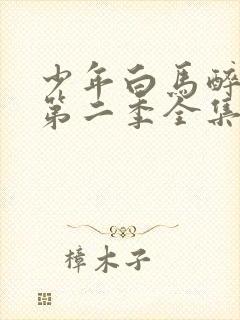 少年白馬醉
第二季全集
樟木子